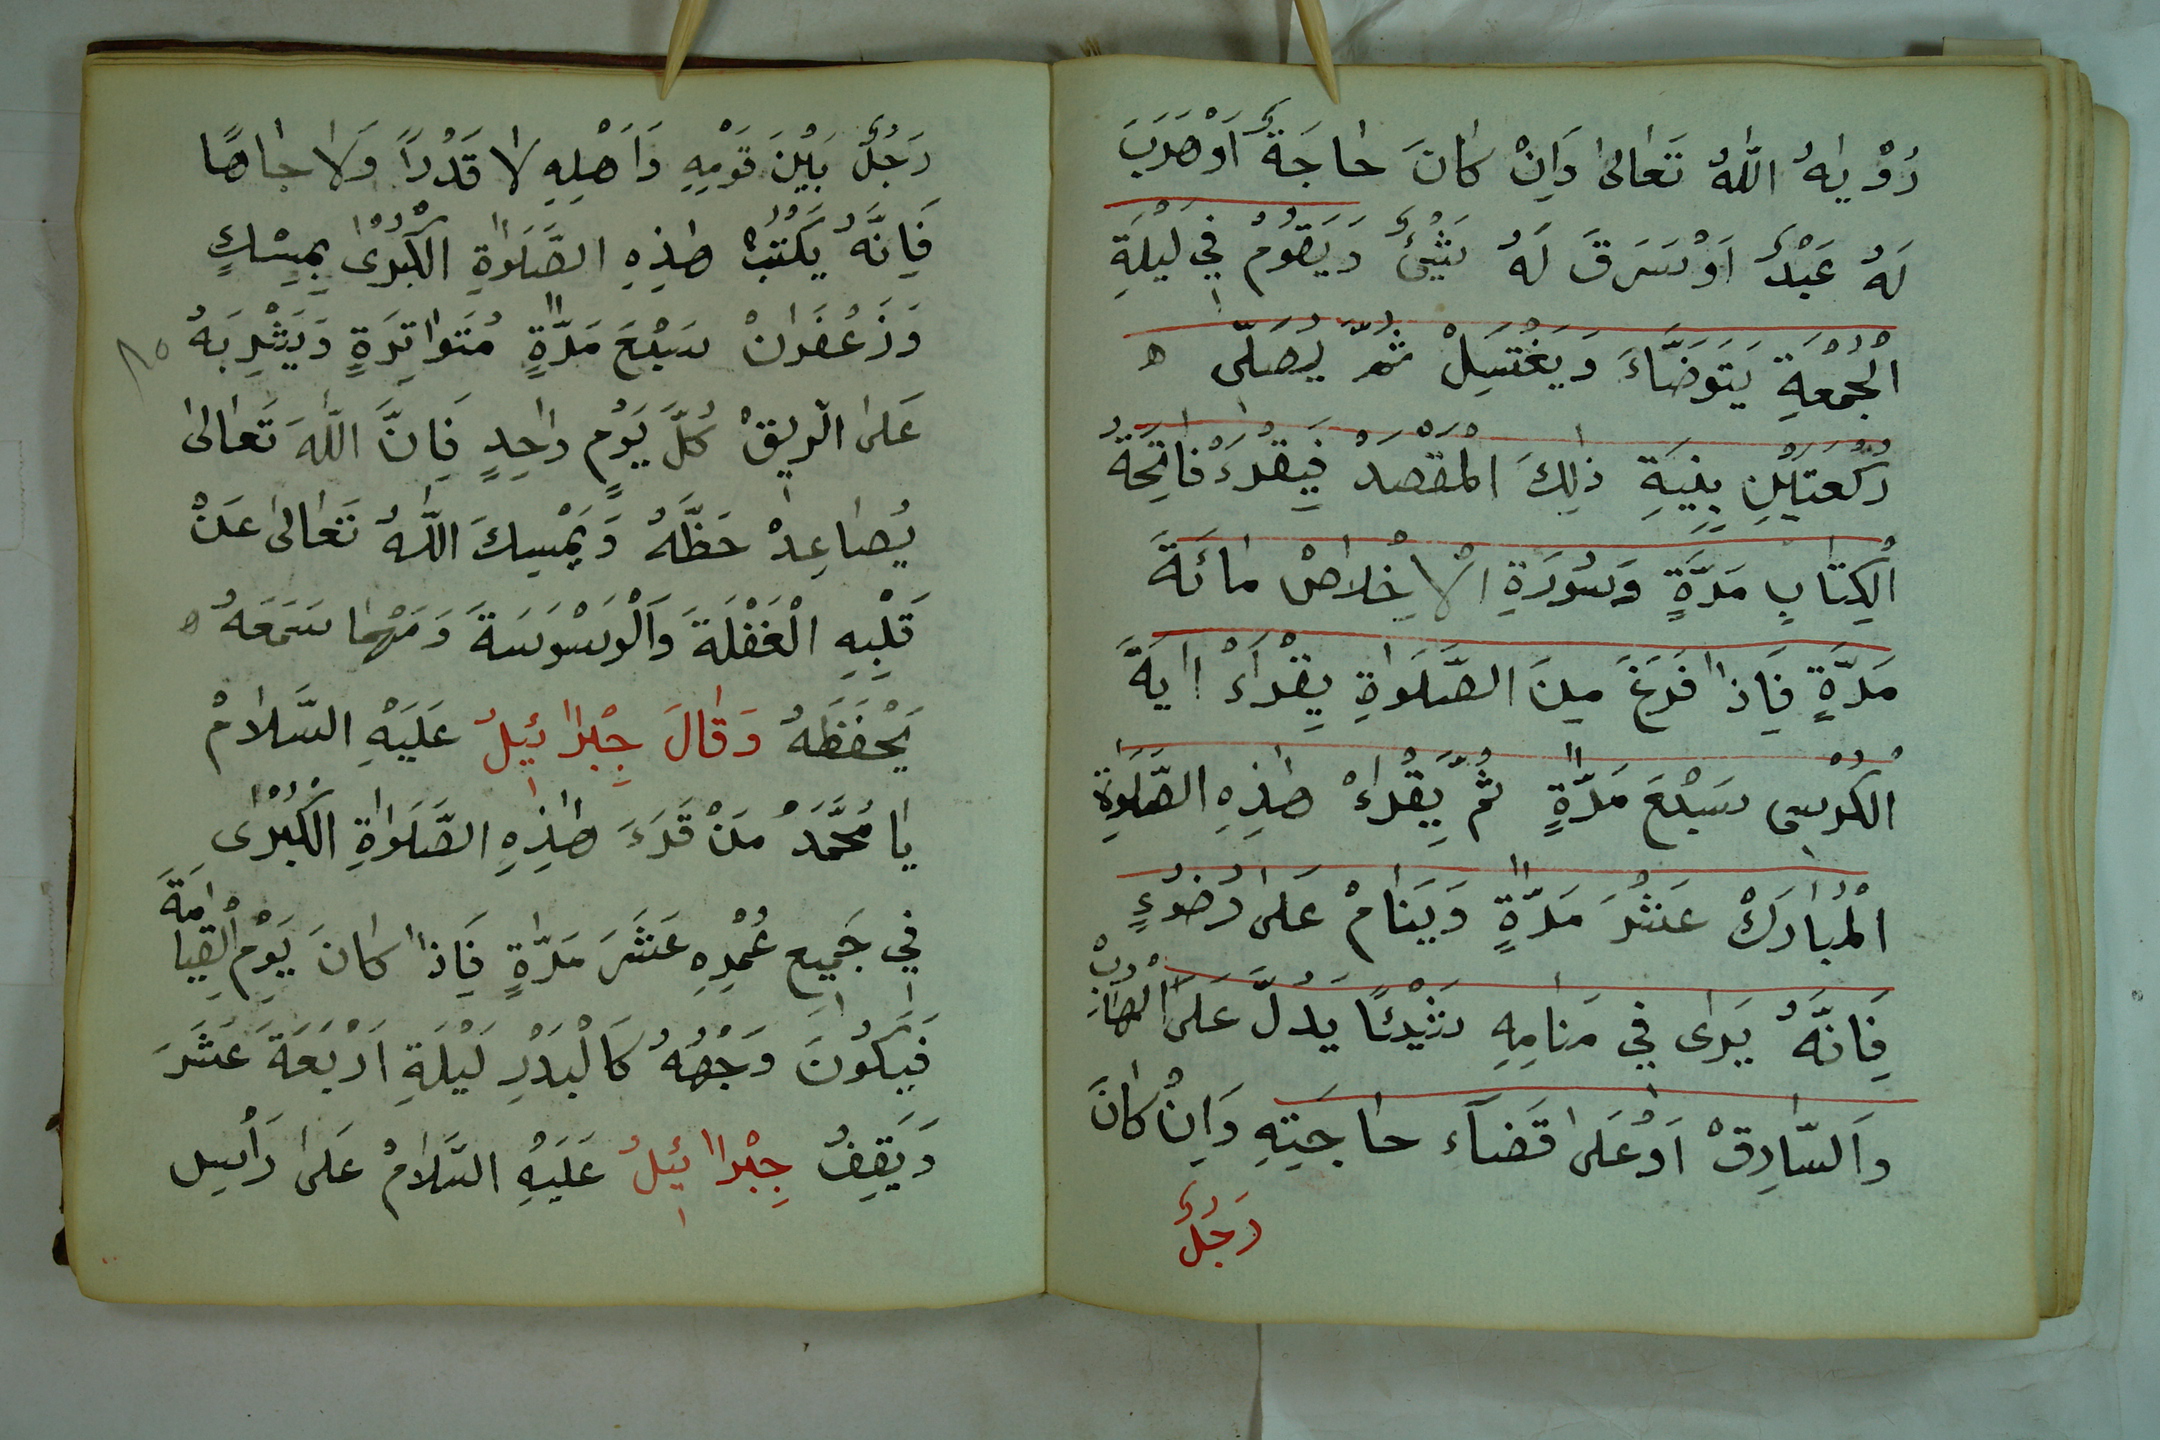 رُؤْيٰهُ اللّٰهُ تَعَالىٰ وَاِنْ كَانَ حَاجَةٌ اَوْهَرَبَ
لَهُ عَبْدٌ اَوْسَرَقَ لَهُ شَيْئٌ وَيَقُومُ فِي لَيْلَةِ
الْجُمْعَةِ يَتَوَضَّاءَ وَيَغْتَسِلْ ثُمَّ يُصَلّى ه
رَكْعَتَيْنِ بِنِيَةِ ذٰلِكَ الْمَقْصَدْ فَيَقْرَءُ فَاتِحَةُ
الْكِتَابِ مَرَّةٍ وَسُورَةِ الْاِخْلَاصْ مَائَةَ
مَرَّةٍ فَاِذَا فَرَغَ مِنَ الصَّلَوٰةِ يِقْرَاَءْ اٰيَةَ
الْكُرْسِى سَبْعَ مَرَّةٍ ثُمَّ يَقْرَاءْ هٰذِهِ الصَّلَوٰةِ
الْمُبَارَكْ عَشْرَ مَرَّةٍ وَيَنَامْ عَلىٰ وُضُوءٍ
فَاِنَّهُ يَرٰى فِي مَنَامِهِ شَيْئًا يَدُلَّ عَلىَ الْهَارِبْ
وَالسَّارِقْ اَوْعَلىٰ قَضَآءِ حَاجَتِهِ وَاِنْ كَانَ
رَجُلٌ
رَجُلٌ بَيْنَ قَوْمِهِ وَاَهْلِهِ لَا قَدْرًا وَلَا جَاهًا
فَاِنَّهُ يَكْتُبْ هٰذِهِ الصَّلَوٰةِ الْكُبْرىٰ بِمِسْكٍ
وَزَعْفَرَانْ سَبْعَ مَرَّةٍ مُتَوَاتِرَةٍ وَيَشْرِبَهُ
٨٥
عَلىٰ الرّيِقْ كُلَّ يَوْمٍ وَاحِدٍ فَاِنَّ اللّٰهَ تَعَالىٰ
يُصَاعِدْ حَظَّهُ وَيَمْسِكَ اللّٰهُ تَعَالىٰ عَنْ
قَلْبِهِ الْغَفْلَةَ وَالْوَسْوَسَةَ وَمَهْمَا سَمَعَهُ ه
يَحْفَظَهُ وَقَالَ جِبْرَائِيلُ عَلَيْهِ السَّلَامْ
يَا مُحَمَّدْ مَنْ قَرَءَ هٰذِهِ الصَّلَوٰةِ الْكُبْرٰى
فِي جَمِيعِ عُمْرِهِ عَشَرَ مَرَّةٍ فَاِذَا كَانَ يَوْمِ الْقِيَامَةَ
فَيَكُونَ وَجْهُهُ كَالْبَدْرِ لَيْلَةِ اَرْبَعَةَ عَشَرَ
وَيَقِفُ جِبْرَائِيلُ عَلَيْهِ السَّلَامُ عَلىٰ رَأْسِلِ